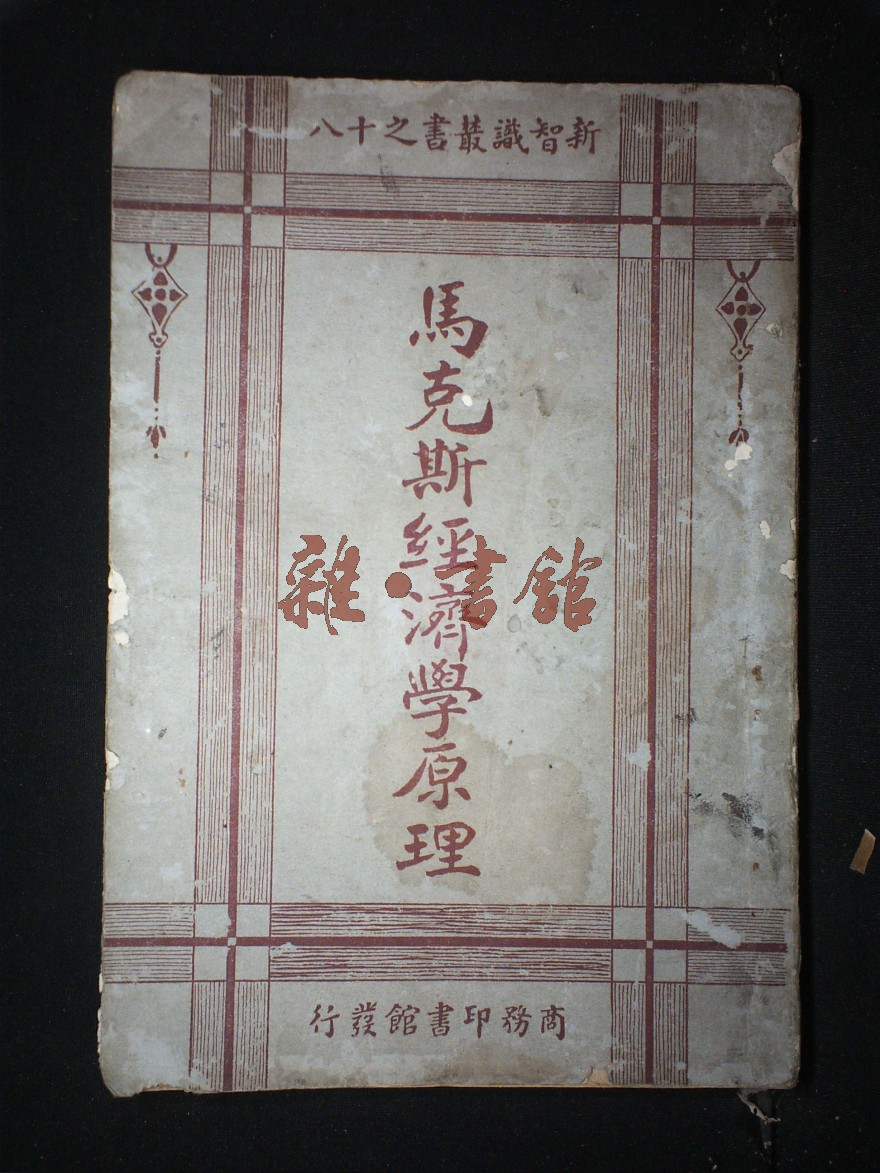 新智識叢書之十八
馬克斯經濟學原理
雜·書館
商務印書館發行